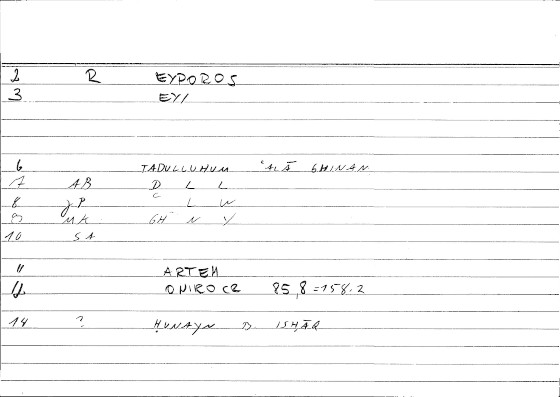 2 R EYPOROS
3 EYI
6 TADULLUHUM ʿALĀ GHINAN
7 AB D L L
8 JP C L W
9 MK GH N Y
10 SA
11 ARTEM
12 ONIROCR 85,8=158.2
14 ? ḤUNAYN B. ISḤĀQ